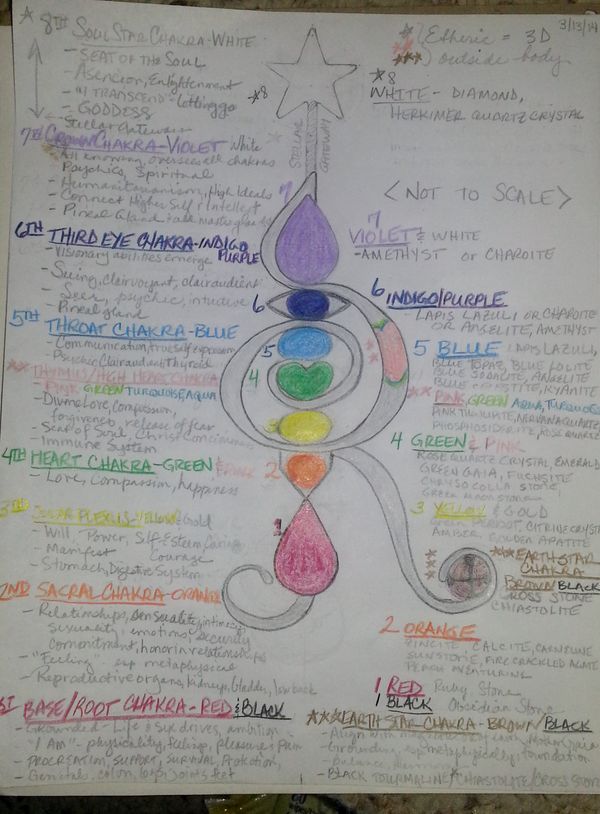 3/13/14
*8TH SOUL STAR CHAKRA-WHITE
- SEAT OF THE SOUL
- Ascension, Enlightenment
- "I TRANSCEND" - Letting go
- GODDESS
- Stellar Gateway
7TH CROWN CHAKRA-VIOLET White
- All knowing, oversees all chakras
Psychics, Spiritual
- Humanitarianism, High Ideals
- Connect Higher Self & Intellect
- Pineal Gland
6TH THIRD EYE CHAKRA-INDIGO
PURPLE
- Visionary abilities emerge
- Seeing, clairvoyant, clairaudient
- Seer, psychic, intuitive
- Pineal gland
5TH THROAT CHAKRA-BLUE
- Communication, true self expression
- Psychic Clairaudient Thyroid
** THYMUS/HIGH HEART CHAKRA
PINK GREEN TURQUOISE, AQUA
- Divine Love, Compassion,
forgiveness, release of fear
- Seat of Soul, Christ Consciousness
- Immune System
4TH HEART CHAKRA-GREEN & PINK
- Love, Compassion, happiness
3RD SOLAR PLEXUS-YELLOW & Gold
- Will, Power, Self-Esteem, Caring
- Manifest Courage
- Stomach, Digestive System
2ND SACRAL CHAKRA-ORANGE
- Relationships, sensuality, intimacy
sexuality, emotions, security
commitment, honor in relationships
- "Feeling" esp metaphysical
- Reproductive organs, kidneys, bladder, low back
1ST BASE/ROOT CHAKRA-RED & BLACK
- Grounded - Life & sex drives, ambition
"I AM" - physicality, feelings, pleasure & Pain
- PROCREATION, SUPPORT, SURVIVAL, PROTECTION,
- Genitals, colon, legs, joints, feet
*8
STELLAR
GATEWAY
7
6
5
4
2
1
*
**
***
Etheric = 3D
outside body
*8
WHITE - DIAMOND,
HERKIMER QUARTZ CRYSTAL
<NOT TO SCALE>
7
VIOLET & WHITE
- AMETHYST or CHAROITE
6 INDIGO/PURPLE
- LAPIS LAZULI OR CHAROITE
OR ANGELITE, AMETHYST
5 BLUE LAPIS LAZULI,
BLUE TOPAZ, BLUE IOLITE
BLUE SODALITE, ANGELITE
BLUE CELESTITE, KYANITE
** PINK, GREEN AQUA, TURQUOISE
ROSE QUARTZ
4 GREEN & PINK
ROSE QUARTZ CRYSTAL, EMERALD
GREEN GAIA, FUCHSITE
CHRYSOCOLLA STONE,
GREEN MOONSTONE
3 YELLOW & GOLD
PERIDOT, CITRINE CRYSTAL
AMBER GOLDEN APATITE
***EARTH STAR
CHAKRA
BROWN/BLACK
CROSS STONE
CHIASTOLITE
2 ORANGE
CALCITE, CARNELIAN
SUNSTONE, FIRE CRACKLED AGATE
PEACH AVENTURINE
1 RED Ruby Stone
1 BLACK Obsidian Stone
***EARTH STAR CHAKRA-BROWN/BLACK
- Align with
- Grounding, esp metaphysically, foundation
- Balance,
- BLACK TOURMALINE/CHIASTOLITE/CROSS STONE